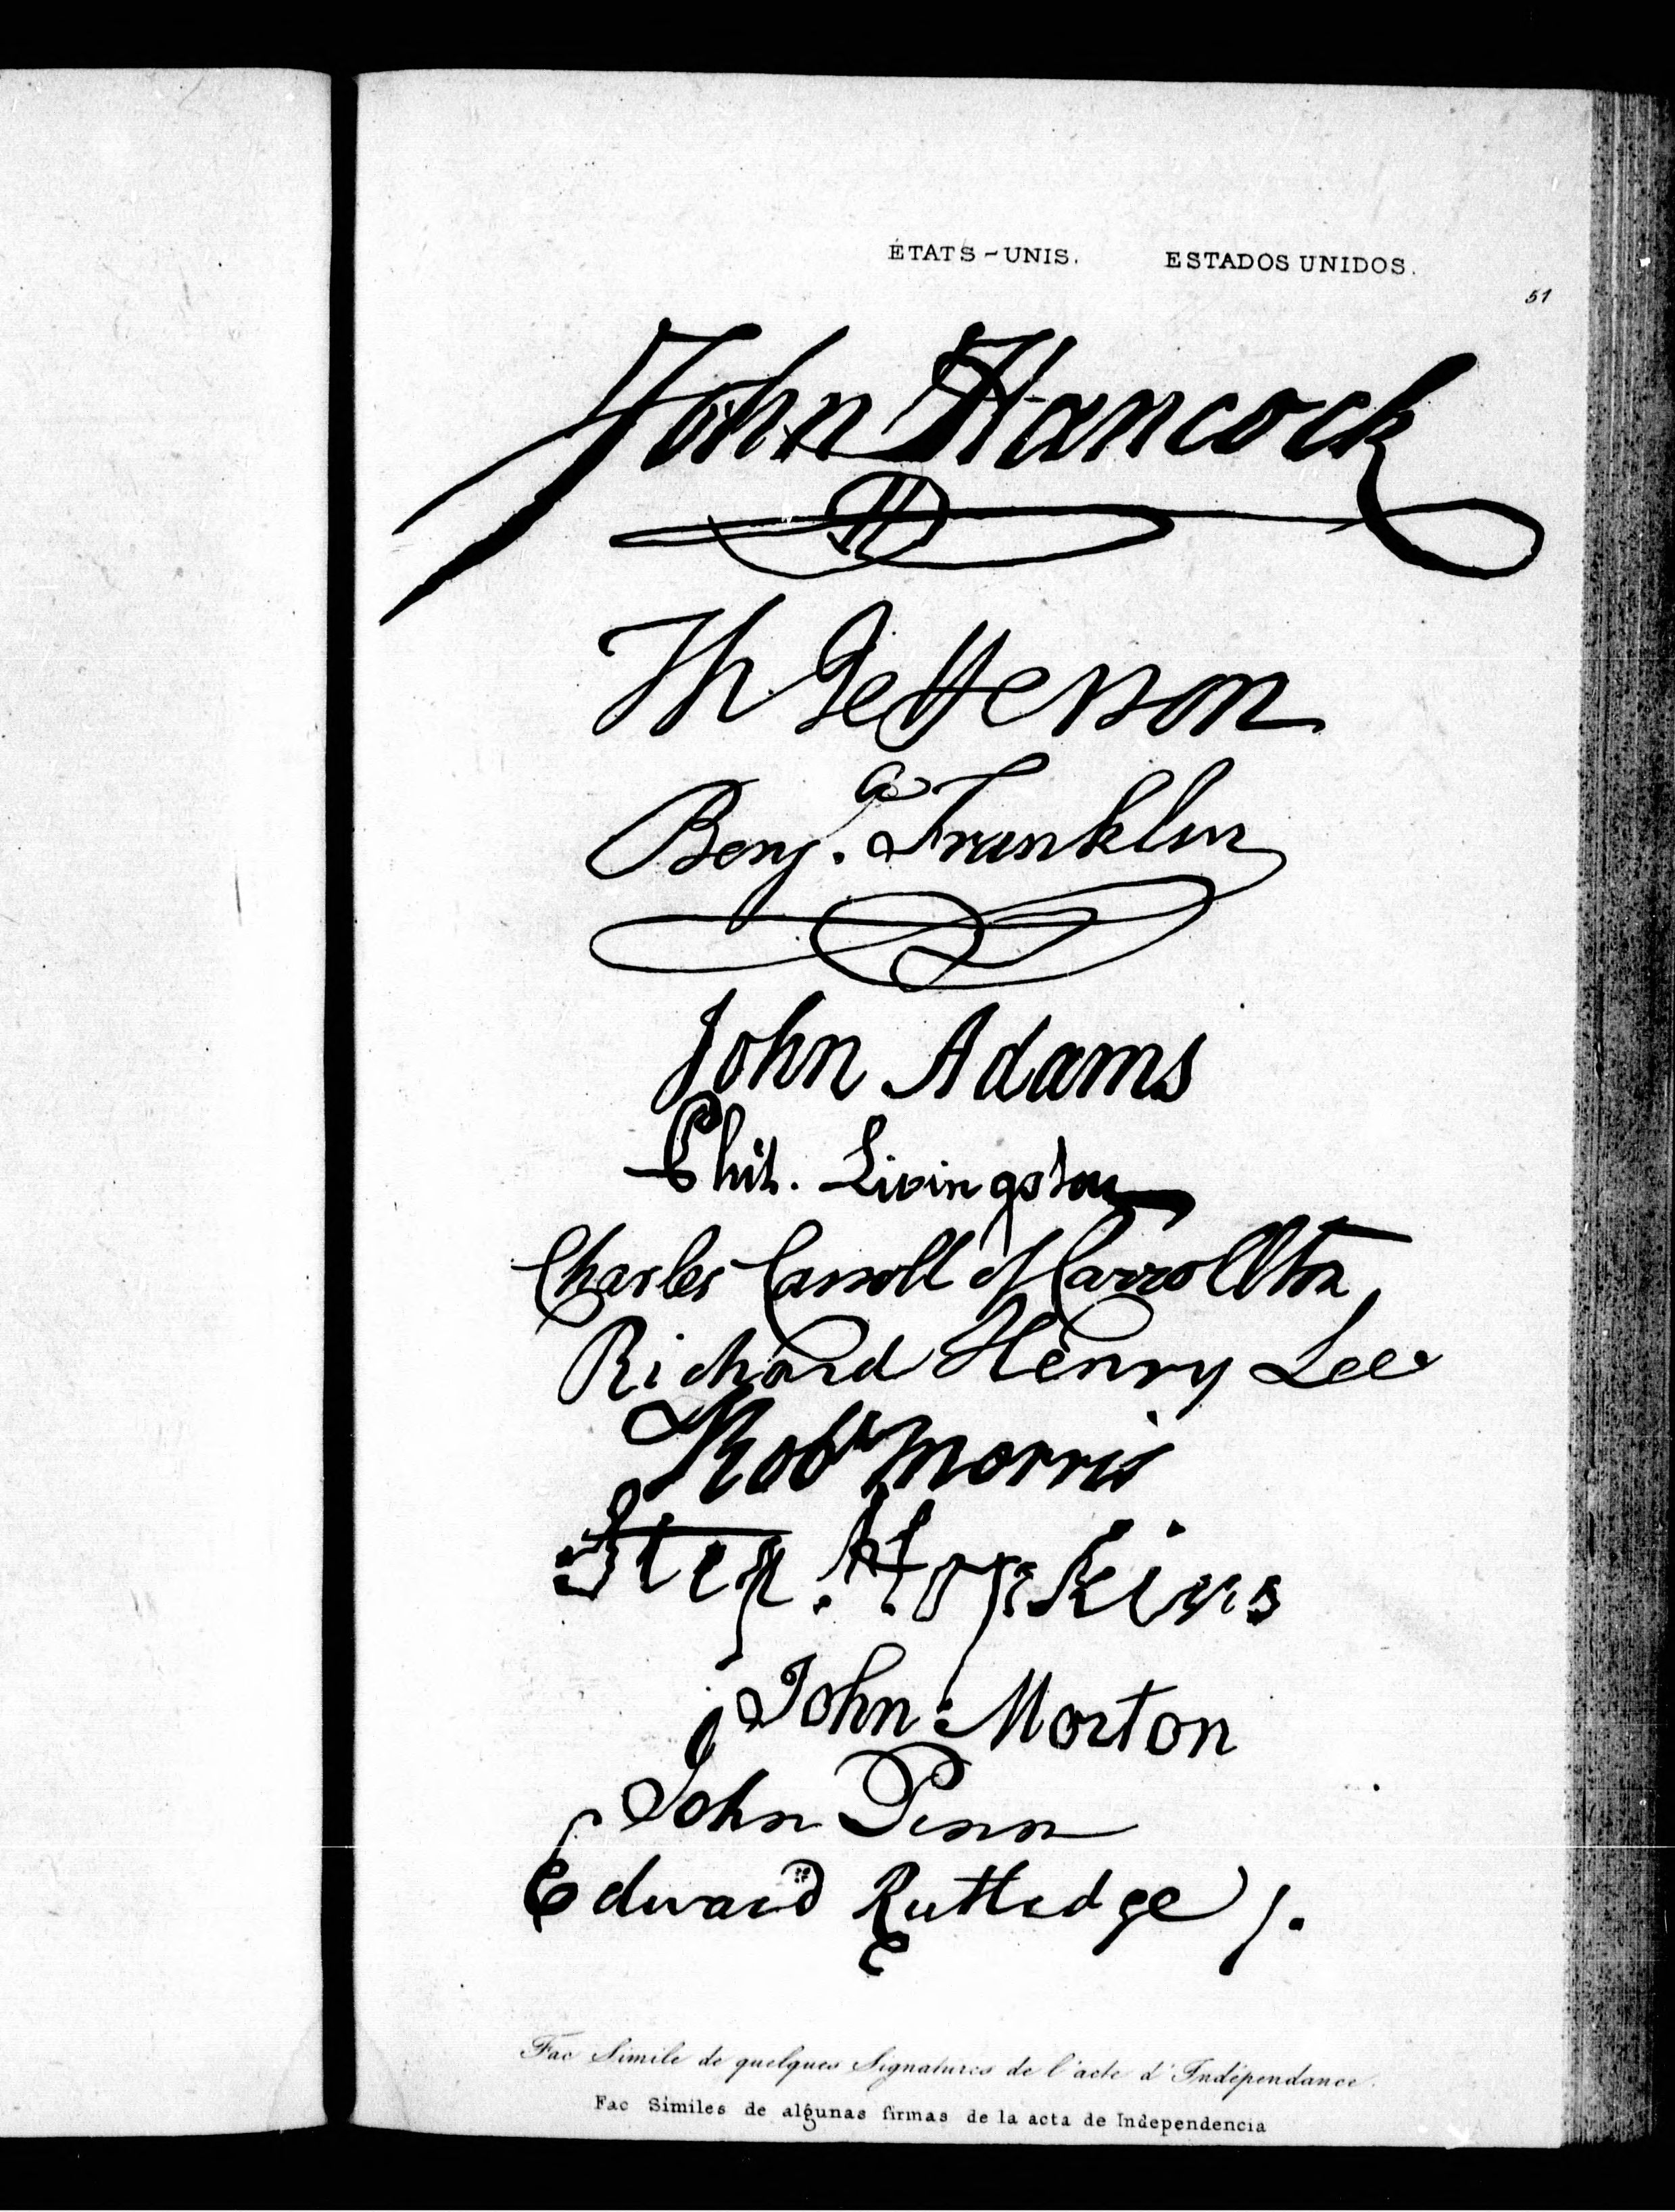 ÉTATS-UNIS. ESTADOS UNIDOS.
51
John Hancock
Th Jefferson
Benj. Franklin
John Adams
Phil. Livingston
Charles Carroll of Carrollton,
Richard Henry Lee
Robt Morris
Step. Hopkins
John Morton
John Penn
Edward Rutledge /.
Fac Simile de quelques Signatures de l'acte d'Indépendance.
Fac Similes de algunas firmas de la acta de Independencia